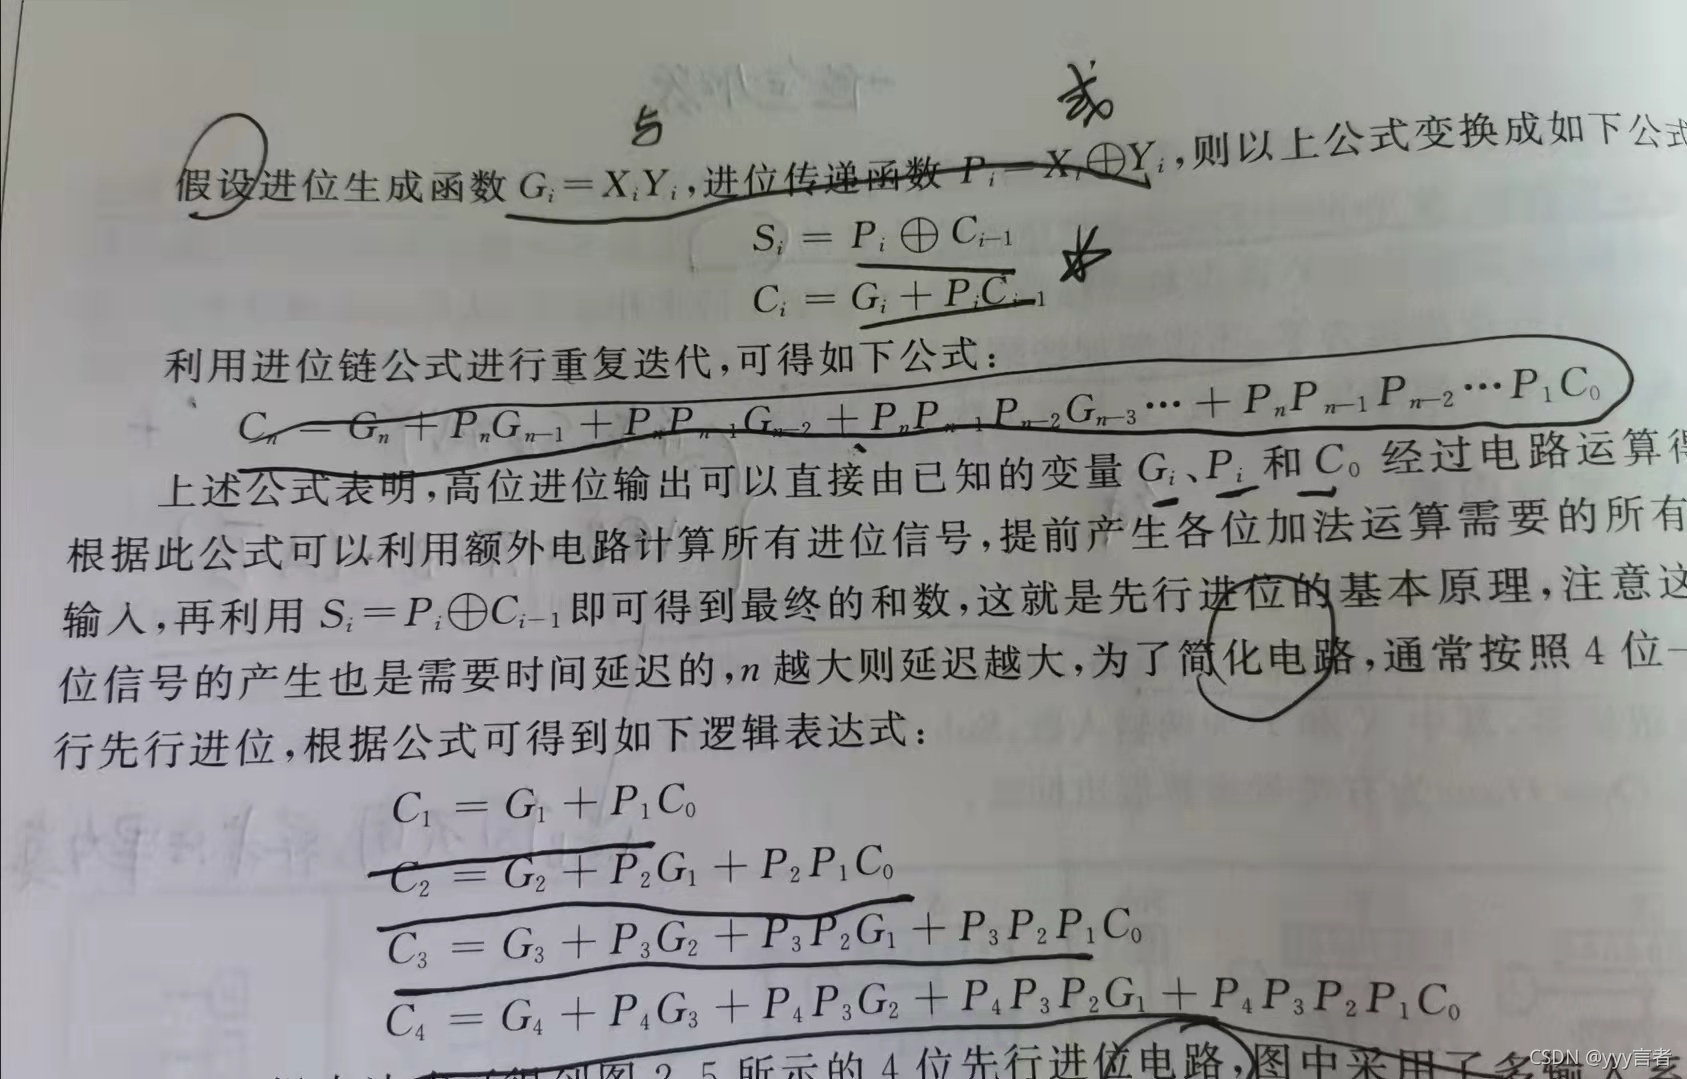 与 或
假设进位生成函数 Gᵢ=XᵢYᵢ,进位传递函数 Pᵢ=Xᵢ⊕Yᵢ,则以上公式变换成如下公式
Sᵢ = Pᵢ ⊕ Cᵢ₋₁
Cᵢ = Gᵢ + PᵢCᵢ₋₁
利用进位链公式进行重复迭代,可得如下公式:
Cₙ = Gₙ + PₙGₙ₋₁ + PₙPₙ₋₁Gₙ₋₂ + PₙPₙ₋₁Pₙ₋₂Gₙ₋₃⋯ + PₙPₙ₋₁Pₙ₋₂⋯P₁C₀
上述公式表明,高位进位输出可以直接由已知的变量 Gᵢ、Pᵢ 和 C₀ 经过电路运算得
根据此公式可以利用额外电路计算所有进位信号,提前产生各位加法运算需要的所有
输入,再利用 Sᵢ=Pᵢ⊕Cᵢ₋₁即可得到最终的和数,这就是先行进位的基本原理,注意这
位信号的产生也是需要时间延迟的,n 越大则延迟越大,为了简化电路,通常按照 4 位一
行先行进位,根据公式可得到如下逻辑表达式:
C₁ = G₁ + P₁C₀
C₂ = G₂ + P₂G₁ + P₂P₁C₀
C₃ = G₃ + P₃G₂ + P₃P₂G₁ + P₃P₂P₁C₀
C₄ = G₄ + P₄G₃ + P₄P₃G₂ + P₄P₃P₂G₁ + P₄P₃P₂P₁C₀
图 2.5 所示的 4 位先行进位电路,图中采用了多输入
CSDN @yyy言者